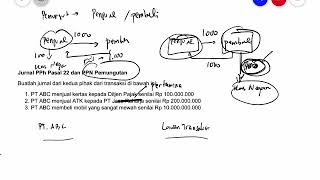 Pemungut → Penjual / pembeli
1000 1000
penjual → pembeli penjual → pembeli
100 2
kas Negara 1.00 kas Negara
Jurnal PPh Pasal 22 dan PPN Pemungutan
Buatlah jurnal dari kedua pihak dari transaksi di bawah ini
1. PT ABC menjual kertas kepada Ditjen Pajak senilai Rp 100.000.000
2. PT ABC menjual ATK kepada PT Jasa Raharja senilai Rp 200.000.000
3. PT ABC membeli mobil yang sangat mewah senilai Rp 10.000.000
Pertamina
PT. ABC Lawan Transaksi